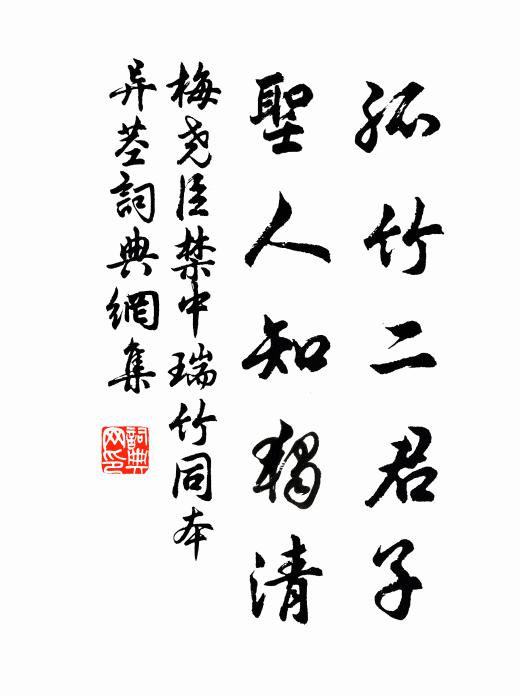 孤竹二君子
聖人知獨清
梅堯臣禁中瑞竹同本
异莖詞典網集
詞典
网印